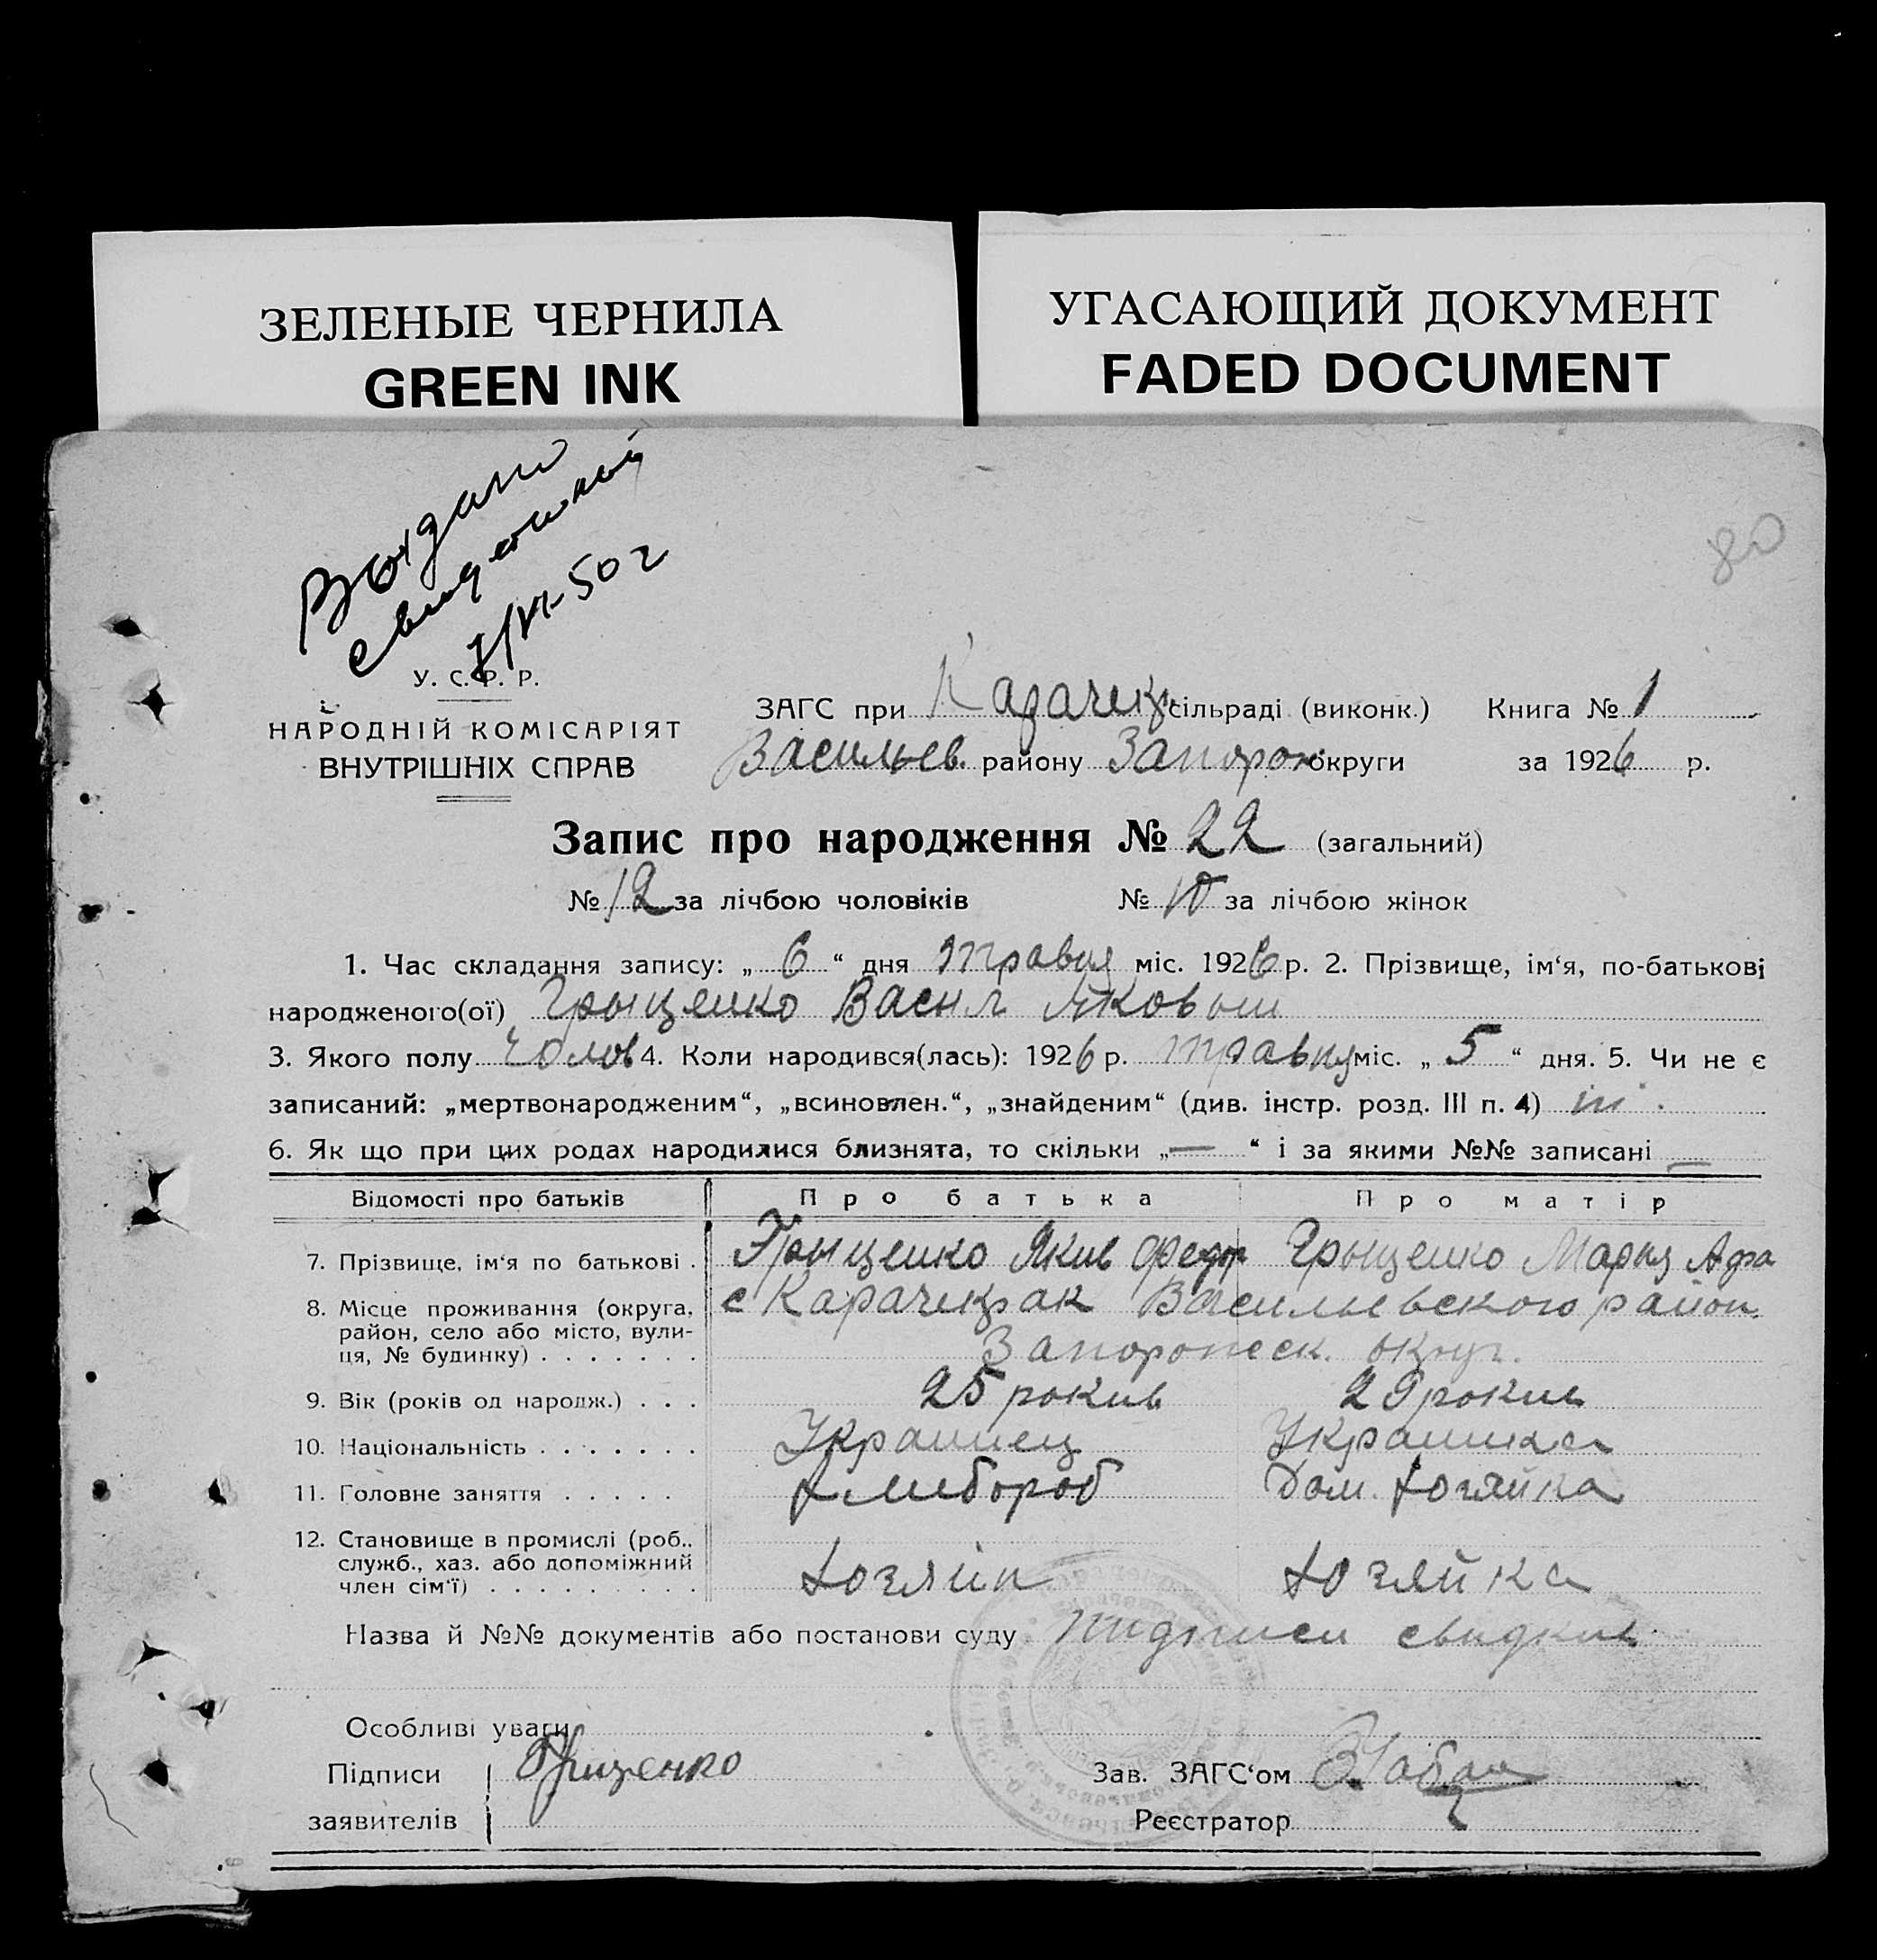 ЗЕЛЕНЫЕ ЧЕРНИЛА
GREEN INK
УГАСАЮЩИЙ ДОКУМЕНТ
FADED DOCUMENT
Выдано
50 г
80
У. С. Р. Р.
НАРОДНІЙ КОМІСАРІЯТ
ВНУТРІШНІХ СПРАВ
ЗАГС при сільраді (виконк.) Книга № 1
Васильев. району Запорож округи за 1926 р.
Запис про народження № 22 (загальний)
№ 12 за лічбою чоловіків № 10 за лічбою жінок
1. Час складання запису: „ 6 “ дня травня міс. 1926 р. 2. Прізвище, ім‘я, по-батькові
народженого(ої) Грыценко Васил Яковыч
3. Якого полу Чолов 4. Коли народився(лась): 1926 р. травня міс. „ 5 “ дня. 5. Чи не є
записаний: „мертвонародженим“, „всиновлен.“, „знайденим“ (див. інстр. розд. III п. 4)
6. Як що при цих родах народилися близнята, то скільки „—“ і за якими №№ записані —
Відомості про батьків Про батька Про матір
7. Прізвище, ім‘я по батькові . Грыценко Якив Федор Грыценко Мария Афа
8. Місце проживання (округа, район, село або місто, вули-ця, № будинку) . . . . . . . с Карачекрак Васильевского район.
Запорожск. округ.
9. Вік (років од народж.) . . . 25 рокив 29 рокив
10. Національність . . . . . . . Украинец Украинка
11. Головне заняття . . . . . Хлибороб Дом. Хозяйка
12. Становище в промислі (роб.. служб., хаз. або допоміжний член сім‘ї) . . . . . . . . . Хозяин Хозяйка
Назва й №№ документів або постанови суду пидписи свидкив
Особливі уваги
Підписи заявителів Грищенко
Зав. ЗАГС‘ом
Реєстратор